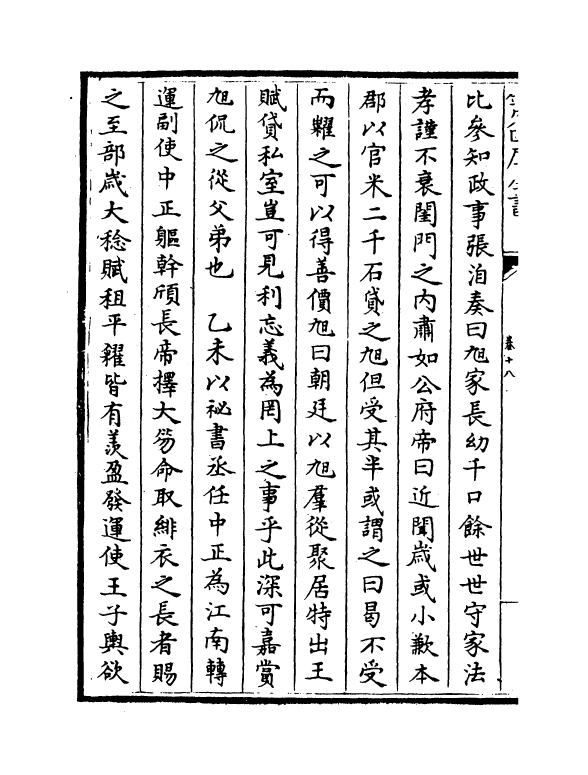 比參知政事張洎奏曰旭家長幼千口餘世世守家法
孝謹不衰閨門之内肅如公府帝曰近聞嵗或小歉本
郡以官米二千石貸之旭但受其半或謂之曰曷不受
而糶之可以得善價旭曰朝廷以旭羣從聚居特出王
賦貸私室豈可見利忘義為罔上之事乎此深可嘉賞
旭侃之從父弟也　乙未以祕書丞任中正為江南轉
運副使中正軀幹頎長帝擇大笏命取緋衣之長者賜
之至部嵗大稔賦租平糴皆有羨盈發運使王子輿欲
卷十八